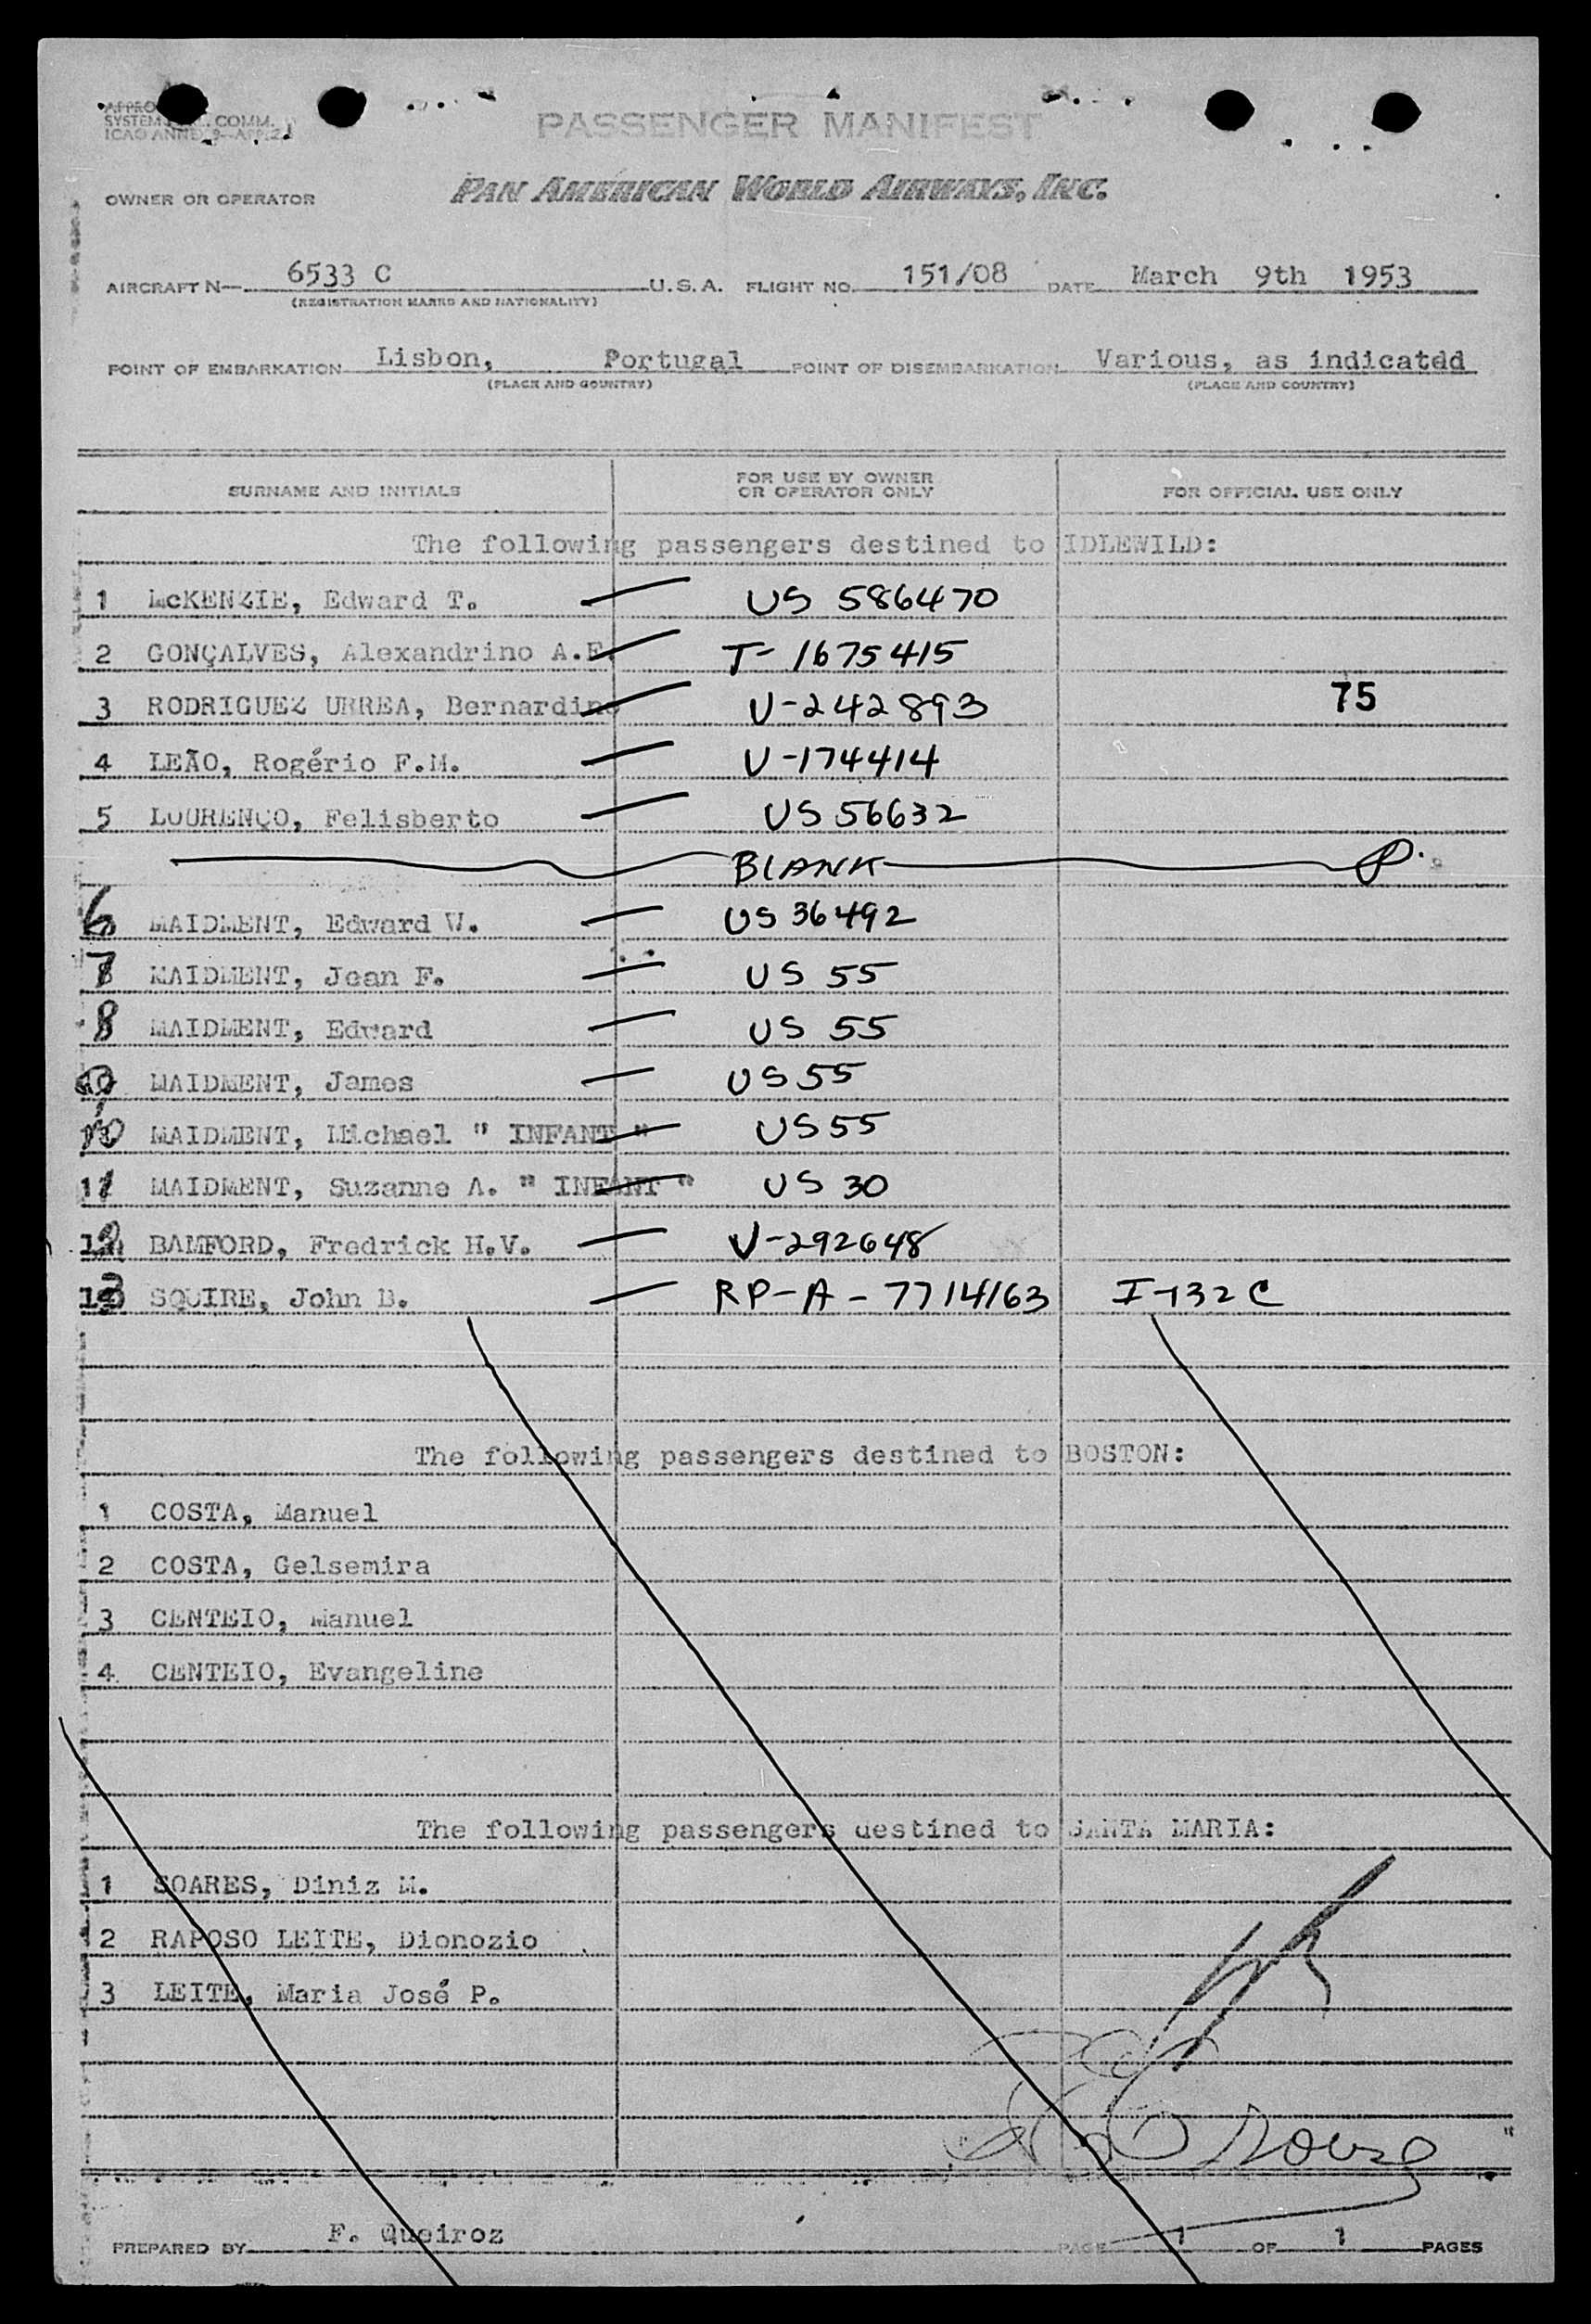 COMM.
PASSENGER MANIFEST
OWNER OR OPERATOR PAN AMERICAN WORLD AIRWAYS, INC.
AIRCRAFT N— 6533 C U.S.A. FLIGHT NO. 151/08 DATE March 9th 1953
(REGISTRATION MARKS AND NATIONALITY)
POINT OF EMBARKATION Lisbon, Portugal POINT OF DISEMBARKATION Various, as indicated
(PLACE AND COUNTRY) (PLACE AND COUNTRY)
SURNAME AND INITIALS FOR USE BY OWNER OR OPERATOR ONLY FOR OFFICIAL USE ONLY
The following passengers destined to IDLEWILD:
1 McKENZIE, Edward T. — US 586470
2 GONÇALVES, Alexandrino A.F. — T- 1675415
3 RODRIGUEZ URREA, Bernardino — V-242893 75
4 LEÃO, Rogério F.M. — V-174414
5 LOURENÇO, Felisberto — US 56632
BLANK
6 MAIDMENT, Edward W. — US 36492
7 MAIDMENT, Jean F. — US 55
8 MAIDMENT, Edward — US 55
MAIDMENT, James — US 55
10 MAIDMENT, Michael " INFANT " — US 55
11 MAIDMENT, Suzanne A. " INFANT " — US 30
12 BAMFORD, Fredrick H.V. — V-292648
13 SQUIRE, John B. — RP-A-7714163 I-132C
The following passengers destined to BOSTON:
1 COSTA, Manuel
2 COSTA, Gelsemira
3 CENTEIO, Manuel
4 CENTEIO, Evangeline
The following passengers destined to SANTA MARIA:
1 SOARES, Diniz M.
2 RAPOSO LEITE, Dionozio
3 LEITE, Maria José P.
PREPARED BY F. Queiroz PAGE 1 OF 1 PAGES